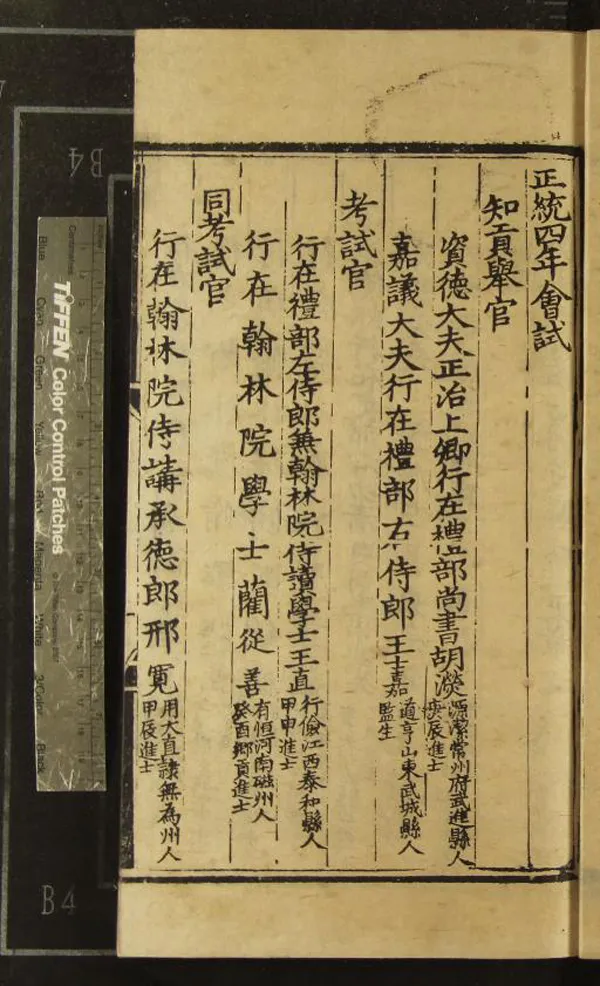 正統四年會試
知貢舉官
資德大夫正治上卿行在禮部尚書胡濙
源潔常州府武進縣人
庚辰進士
嘉議大夫行在禮部右侍郎王士嘉
道亨山東武城縣人
監生
考試官
行在禮部左侍郎兼翰林院侍讀學士王直
行儉江西泰和縣人
甲申進士
行在翰林院學士藺從善
有恒河南磁州人
癸酉鄉貢進士
同考試官
行在翰林院侍講承德郎邢寬
用大直隷無為州人
甲辰進士
B4
TIFFEN Color Control Patches
Blue
Green
Yellow
Red
Magenta
White
3/Color
Black
B4